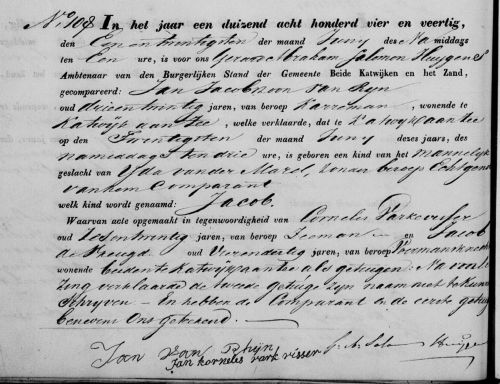 No 108 In het jaar een duizend acht honderd vier en veertig,
den Een en twintigsten der maand Juny des Na middags
ten Een ure, is voor ons Gerard Abraham Salomon
Ambtenaar van den Burgerlijken Stand der Gemeente Beide Katwijken en het Zand,
gecompareerd: Jan Jacobzoon Van Ryn
oud drieentwintig jaren, van beroep Karreman, wonende te
Katwijk aan Zee, welke verklaarde, dat te Katwyk aan Zee
op den Twentigsten der maand Juny dezes jaars, des
namiddags ten drie ure, is geboren een kind van het Mannelyk
geslacht van Yda van der Marel, zonder beroep Echtgenoote
van hem Comparant
welk kind wordt genaamd: Jacob.
Waarvan acte opgemaakt in tegenwoordigheid van Cornelis Varkevisser
oud Zesentwintig jaren, van beroep Zeeman en Jacob
de Vreugd oud Vierendertig jaren, van beroep Voermansknecht
wonende beide te Katwyk aan Zee als getuigen. Na voorle
zing verklaarde de tweede getuige zyn naam niet te kunnen
Schryven – En hebben de Comparant en de eerste getuige
benevens Ons getekend.
Jan van Rhijn
Jan kornelis vark visser